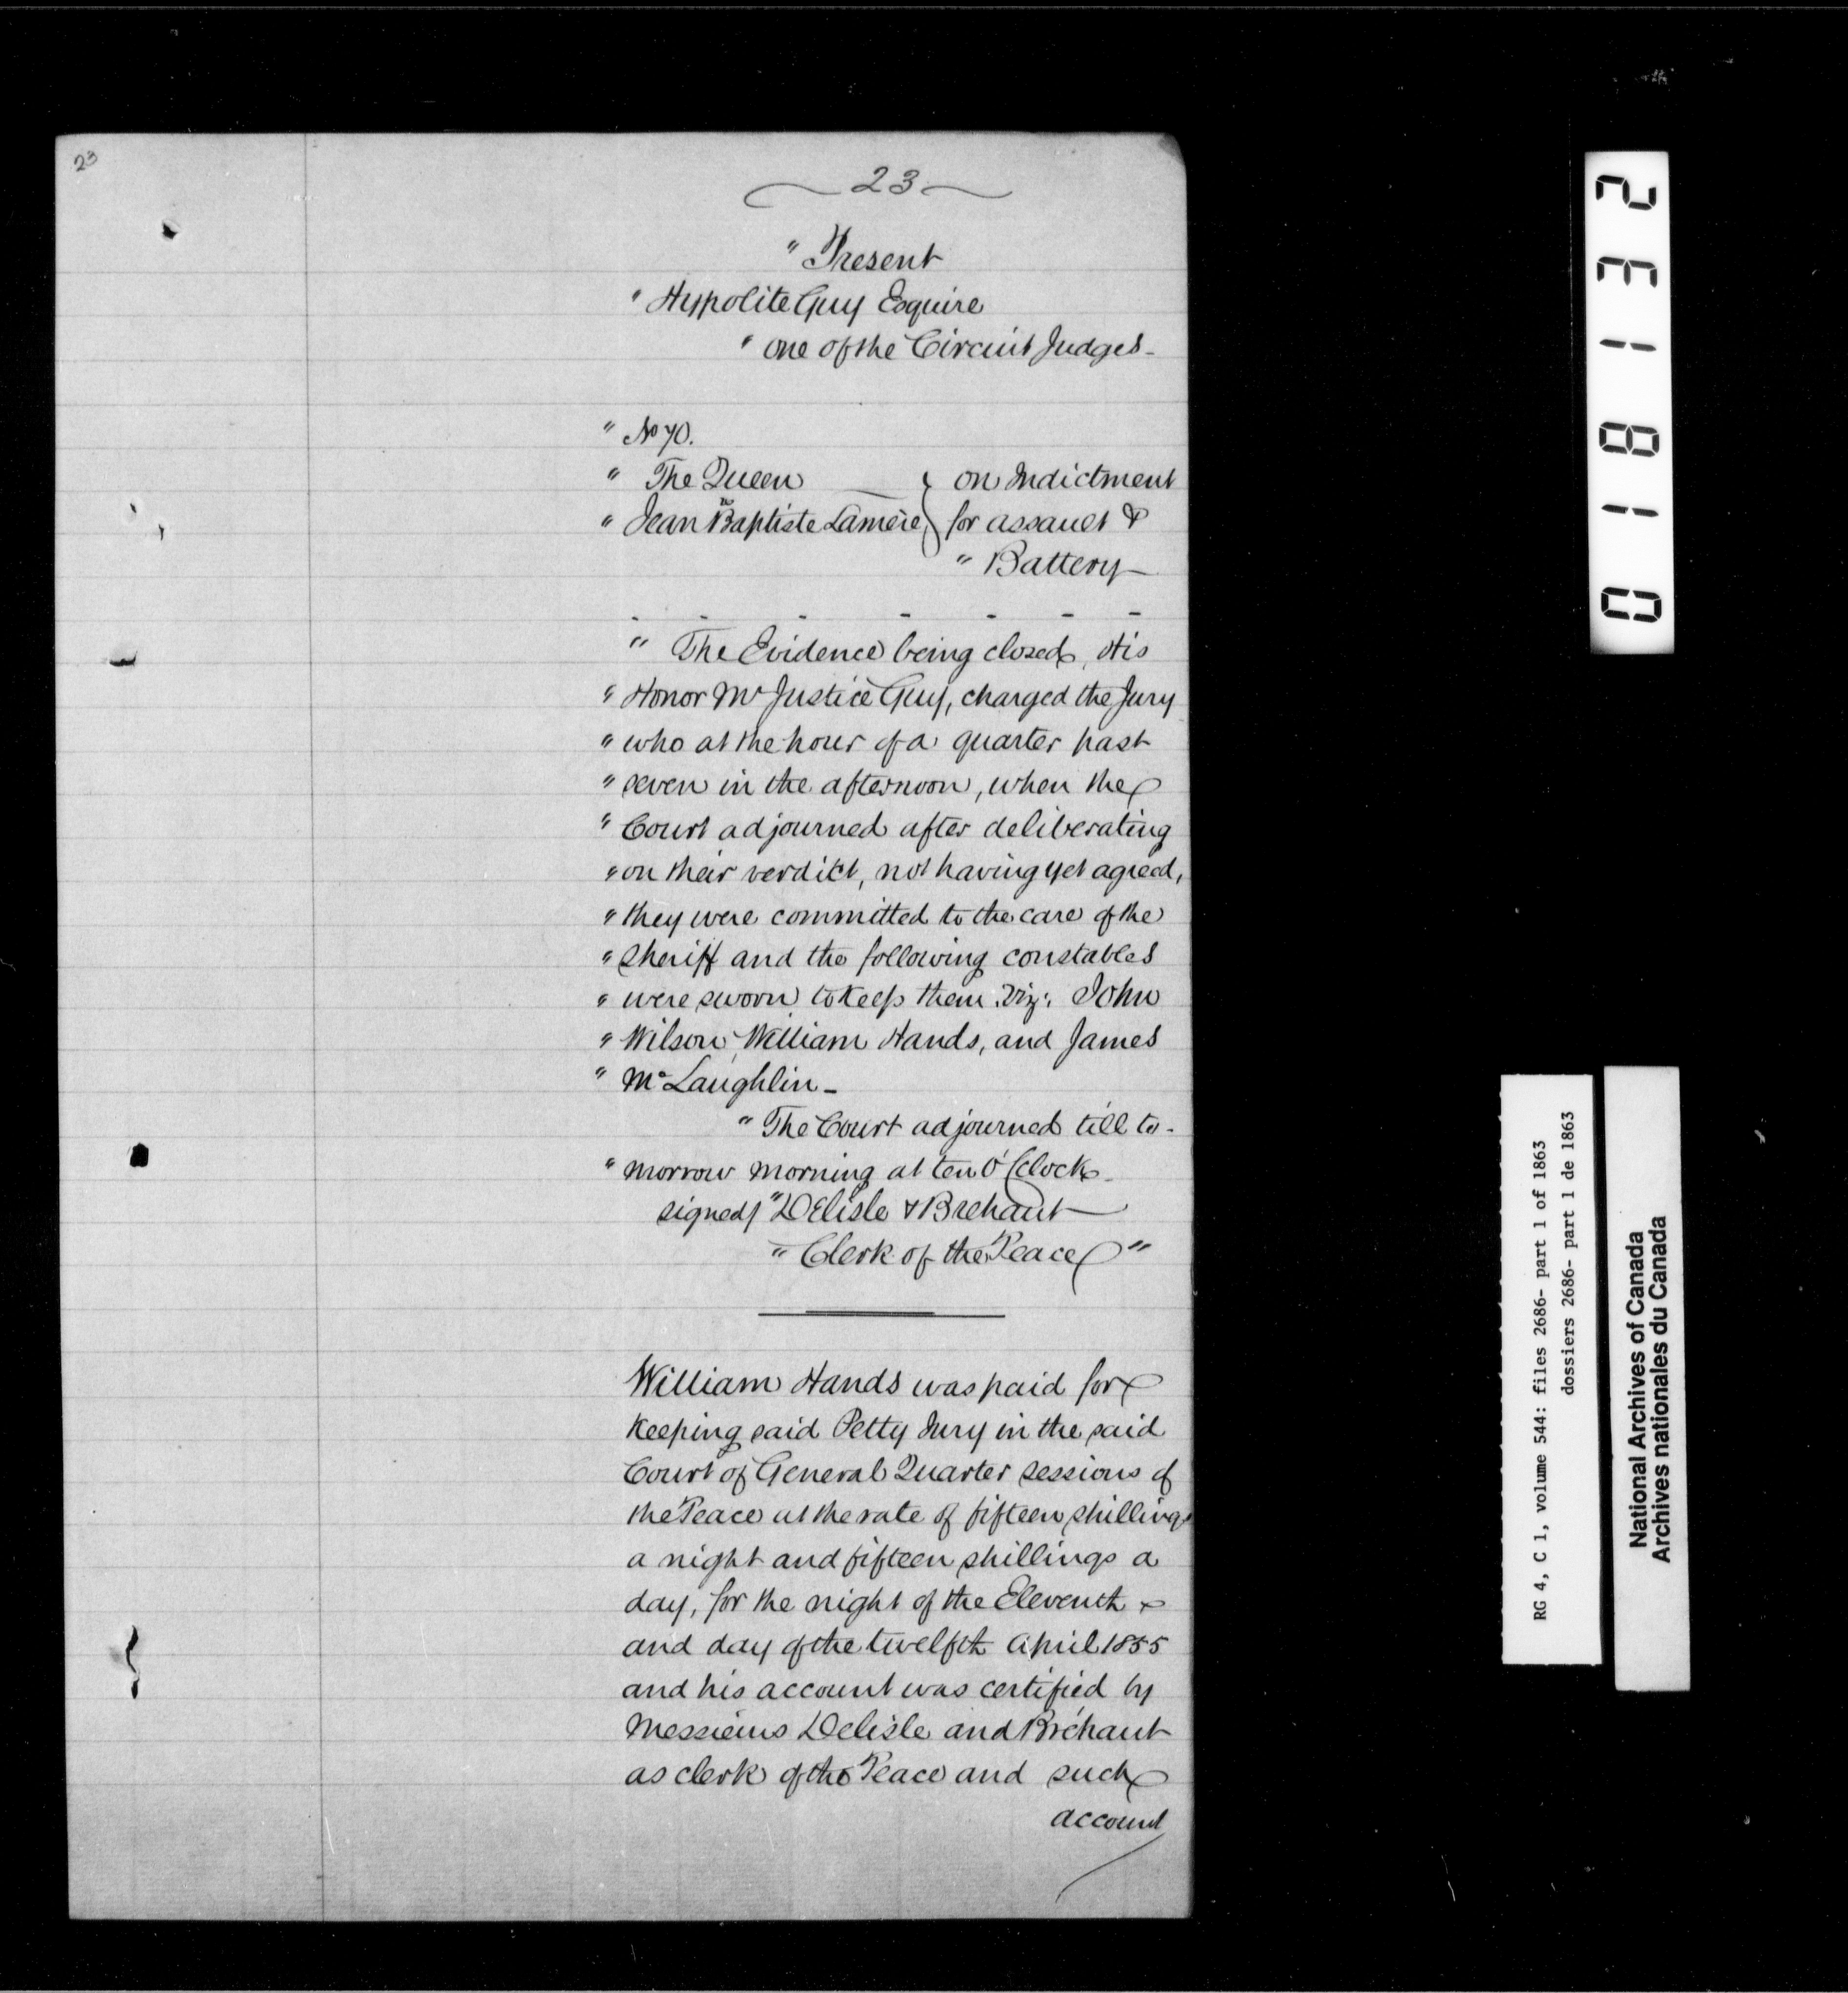 23
23
" Present
" Hypolite Guy Esquire
" one of the Circuit Judges -
" No 70.
" The Queen } on Indictment
vs
" Jean Baptiste Lamere } for assault &
" Battery
- - - - - - -
" The Evidence being closed, His
" Honor Mr Justice Guy, charged the Jury
" who at the hour of a quarter past
" seven in the afternoon, when the
" Court adjourned after deliberating
" on their verdict, not having yet agreed,
" they were committed to the care of the
" Sheriff and the following constables
" were sworn to keep them. Viz: John
" Wilson, William Hands, and James
" McLaughlin -
" The Court adjourned till to-
" morrow morning at ten O'Clock -
signed/ "Delisle & Brehaut
" Clerk of the Peace "
William Hands was paid for
Keeping said Petty Jury in the said
Court of General Quarter sessions of
the Peace at the rate of fifteen shillings
a night and fifteen shillings a
day, for the night of the Eleventh
and day of the twelfth April 1855
and his account was certified by
Messieurs Delisle and Bréhaut
as clerk of the Peace and such
account
018132
RG 4, C 1, volume 544: files 2686- part 1 of 1863
dossiers 2686- part 1 de 1863
National Archives of Canada
Archives nationales du Canada